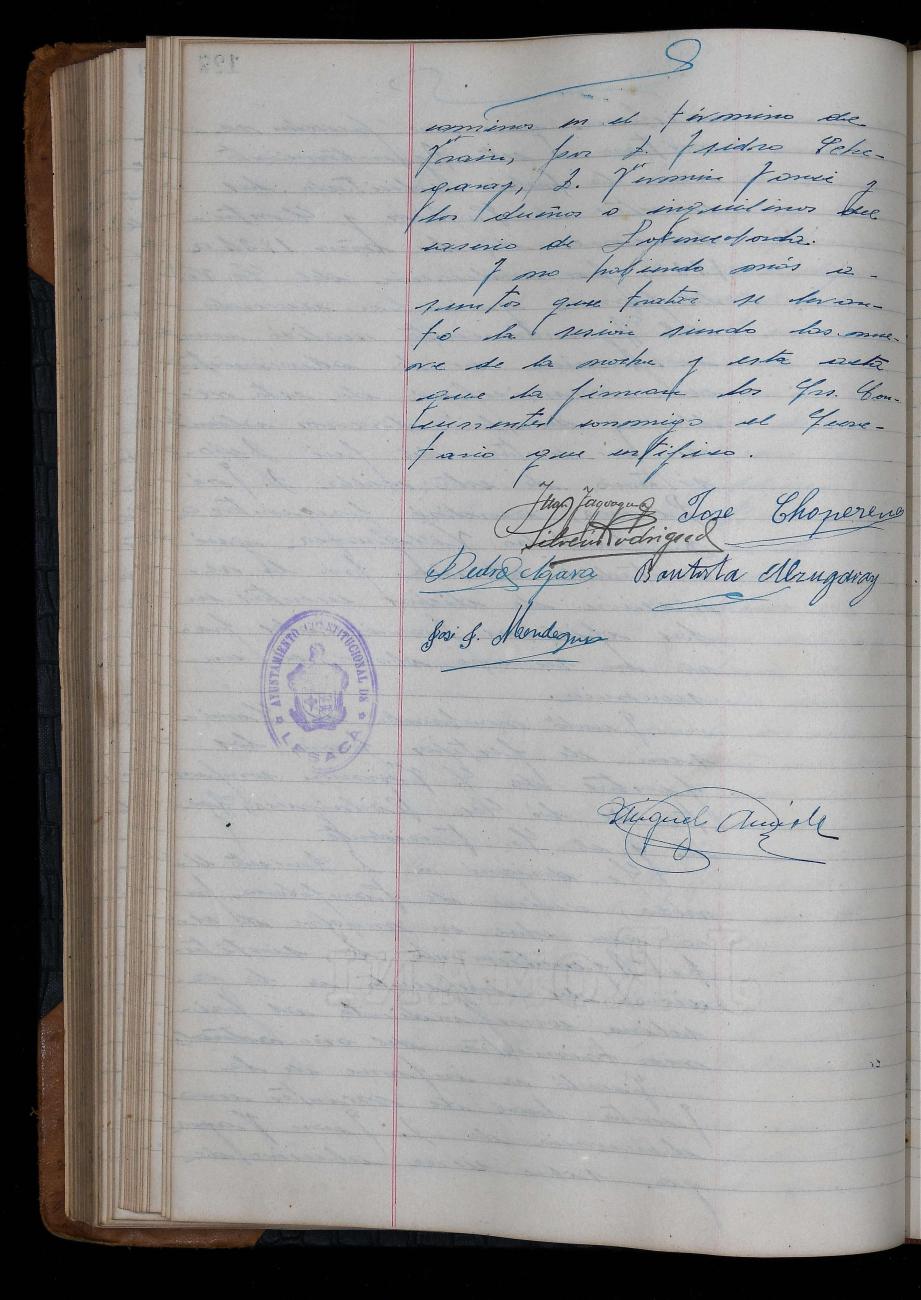 caminos en el término de
Frain, por D. Isidro Eche-
garay, D. Fermin Jorsei y
los dueños o inquilinos del
caserio de
Y no habiendo más a-
suntos que tratar se levan-
tó la sesión siendo las nue-
ve de la noche y esta acta
que la firman los Srs. Con-
currentes conmigo el Secre-
tario que certifico.
Jose Choperena
Silverio Rodriguez
Pedro Bautista Alzugaray
José J. Mendeguia
AYUNTAMIENTO CONSTITUCIONAL DE
LESACA
Miguel